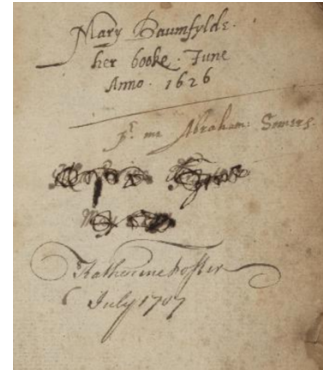 Mary Baumfylde
her booke. June
Anno. 1626
me Abraham: Somers.
Katherine Foster
July 1707